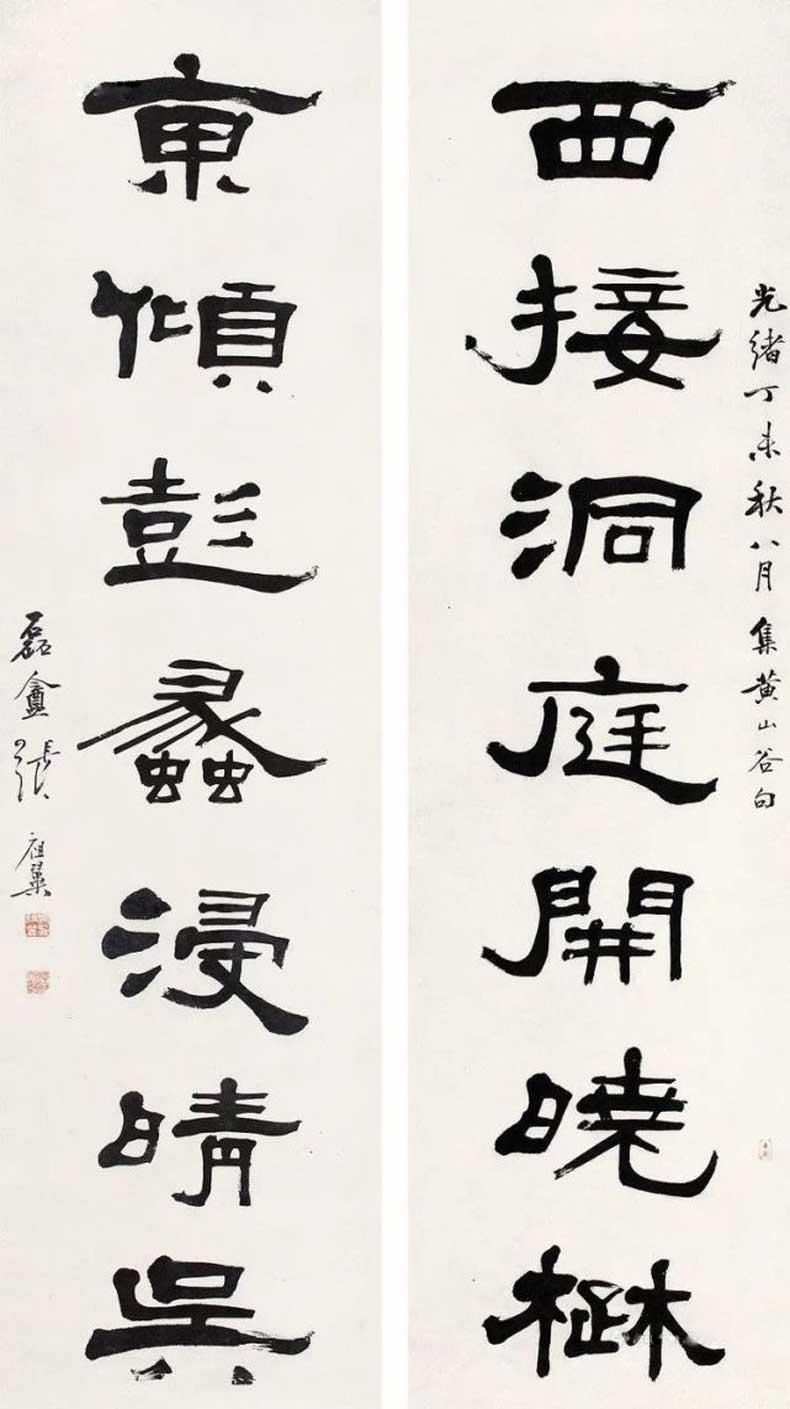 光緒丁未秋八月集黃山谷句
西接洞庭開曉楚
東傾彭蠡浸晴吳
磊盦張祖翼